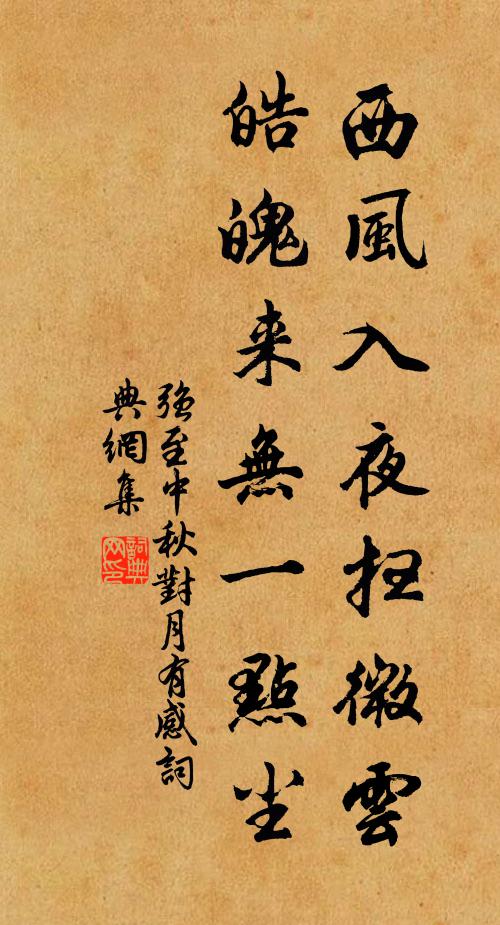 西風入夜扫微雲
皓魄来無一點尘
强至中秋對月有感詞
典網集
詞典
网印